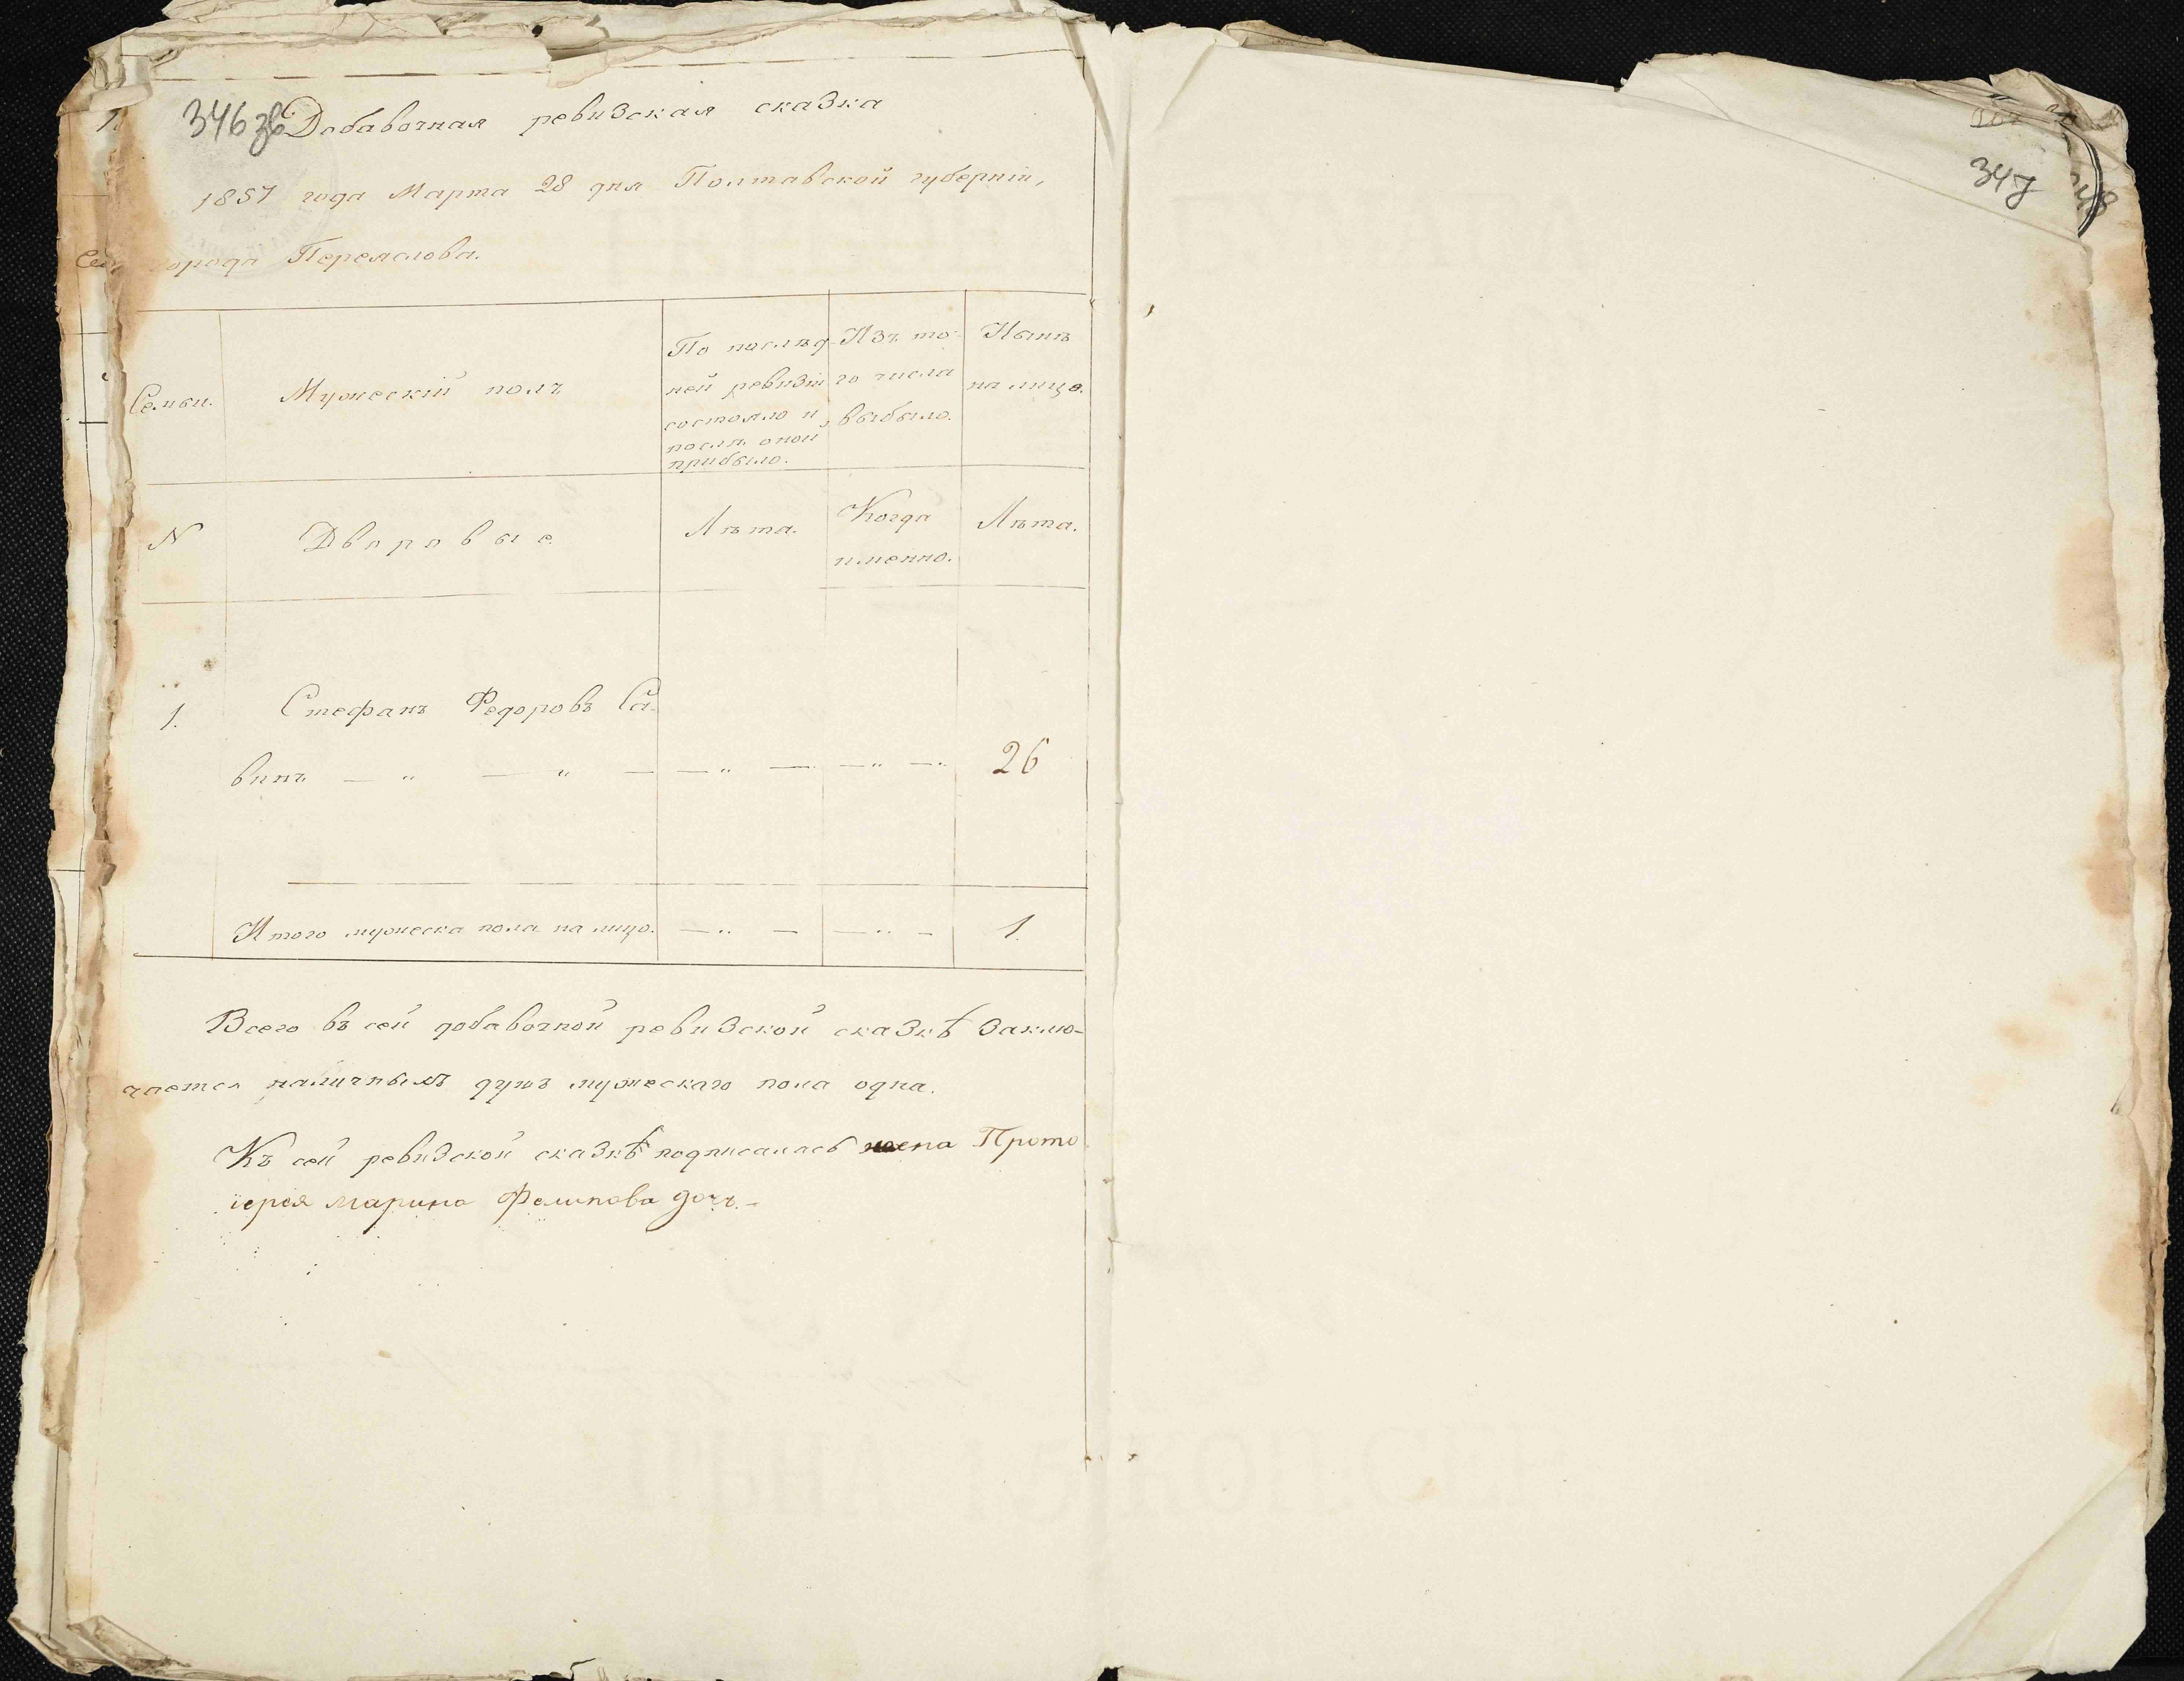 346 зв
Добавочная ревизская сказка
1857 года Марта 28 дня Полтавской губерніи,
города Переяслова.
Семьи.
Мужескій полъ
По послѣд-
ней ревизіи
состояло и
послѣ оной
прибыло.
Изъ то-
го числа
выбыло.
Нынѣ
на лицо.
N
Дворовые
Лѣта.
Когда
именно.
Лѣта.
1.
Стефанъ Федоровъ Са-
винъ — " — " — — " — — " — 26
Итого мужеска пола на лицо. — " — — " — 1.
Всего въ сей добавочной ревизской сказкѣ заклю-
чается наличныхъ душъ мужескаго пола одна.
Къ сей ревизской сказкѣ подписалась жена Прото
іерея Марина Фелипова дочъ.-
347